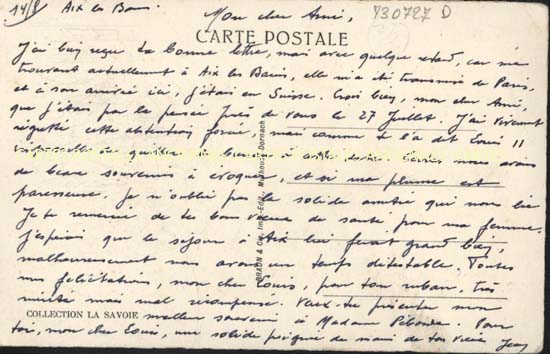 14/8 Aix les Bains. Mon cher Ami, 730727 D
CARTE POSTALE
J'ai bien reçu ta bonne lettre, mais avec quelque retard, car me
trouvant actuellement à Aix les Bains, elle m'a été transmise de Paris,
et à son arrivée ici, j'étais en Suisse. Crois bien, mon cher Ami,
que j'étais par la pensée près de vous le 27 Juillet. J'ai vivement
regretté cette abstention forcée, mais comme te l'a dit Louis II
nous avons
de beaux souvenirs à évoquer, et si ma plume est
paresseuse, je n'oublie pas la solide amitié qui nous lie
Je te remercie de tes bons vœux de santé pour ma femme.
J'espérais que le séjour à Aix lui ferait grand bien,
malheureusement nous avons un temps détestable. Toutes
mes félicitations, mon cher Louis, pour ton ruban, très
mérité mais mal récompensé. Veux-tu présenter mon
COLLECTION LA SAVOIE meilleur souvenir à Madame Pour
toi, mon cher Louis, une solide poignée de main de ton vieux Jean
BRAUN & Cie, Imp.-Edit., Mulhouse-Dornach